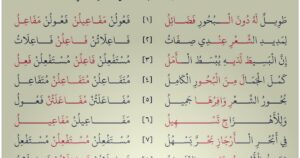 طَوِيلٌ لَهُ دُونَ الْبُحُورِ فَضَائِلُ [١] فَعُولُنْ مَفَاعِيلُنْ فَعُولُنْ
لِمَدِيدِ الشِّعْرِ عِنْدِي صِفَاتُ [٢] فَاعِلَاتُنْ فَاعِلُنْ فَاعِلَاتُ
إِنَّ الْبَسِيطَ لَدَيْهِ يُبْسَطُ الْأَمَلُ [٣] مُسْتَفْعِلُنْ فَاعِلُنْ مُسْتَفْعِلُنْ فَعِلُ
كَمُلَ الْجَمَالُ مِنَ الْبُحُورِ الْكَامِلُ [٤] مُتَفَاعِلُنْ مُتَفَاعِلُنْ مُتَفَاعِلُ
بُحُورُ الشِّعْرِ وَافِرُهَا جَمِيلُ [٥] مُفَاعَلَتُنْ مُفَاعَلَتُنْ فَعُولُ
وَلِلْأَهْزَاجِ تَسْهِيلُ [٦] مَفَاعِيلُنْ مَفَاعِيلُ
فِي أَبْحُرِ الْأَرْجَازِ بَحْرٌ يَسْهُلُ [٧] مُسْتَفْعِلُنْ مُسْتَفْعِلُنْ مُسْتَفْعِلُ